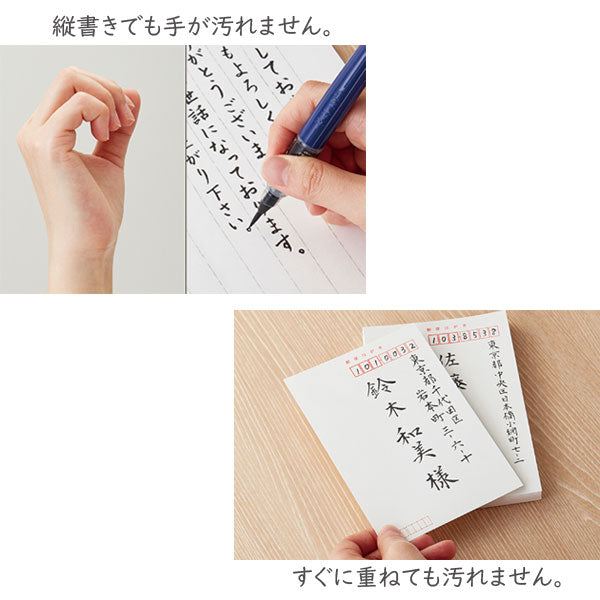 縦書きでも手が汚れません。
してお
もよろしく
がとうございま
世話になっております。
がり下さい。
郵便はがき
1010032
東京都千代田区
岩本町三-六-十
鈴木和美様
郵便はがき
1038538
東京都中央区日本橋小網町七-二
佐藤
すぐに重ねても汚れません。